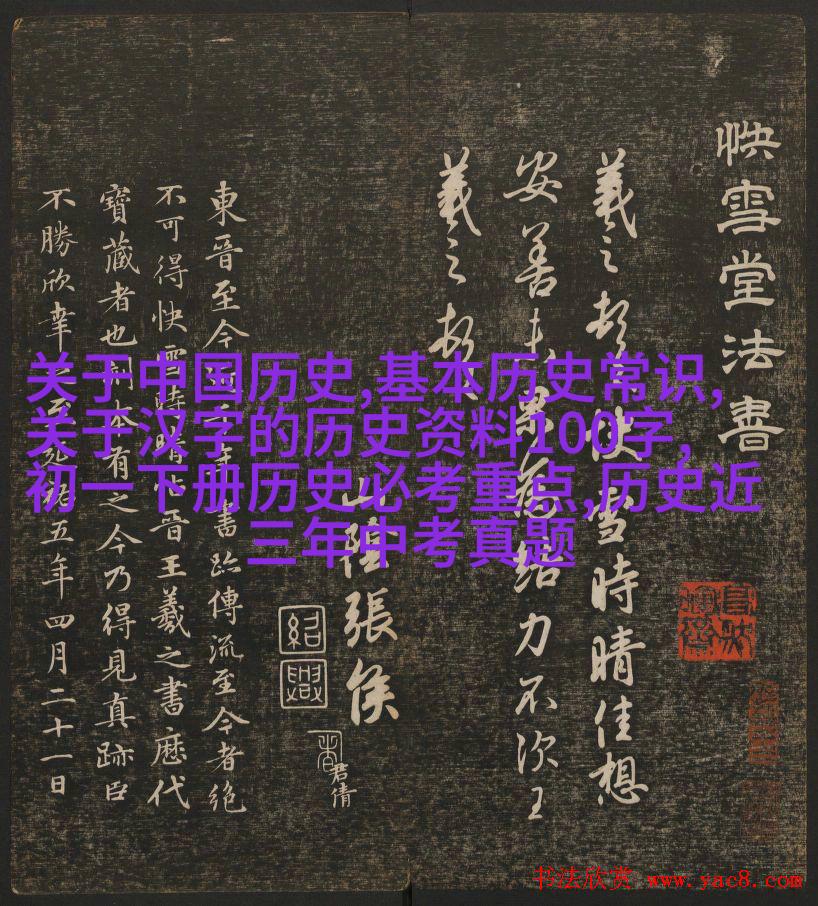 快雪堂法書
羲之頓首快雪時晴佳想
安善未果為結力不次王
羲之頓首
山陰張侯
君倩
東晉至今近三年書跡傳流至今者絕
不可得快雪時晴帖晉王羲之書歷代
寶藏者也刻本有之今乃得見真跡臣
不勝欣幸之至延祐五年四月二十一日
关于中国历史,基本历史常识,
关于汉字的历史资料100字,
初一下册历史必考重点,历史近
三年中考真题
书法欣赏 www.yac8.com